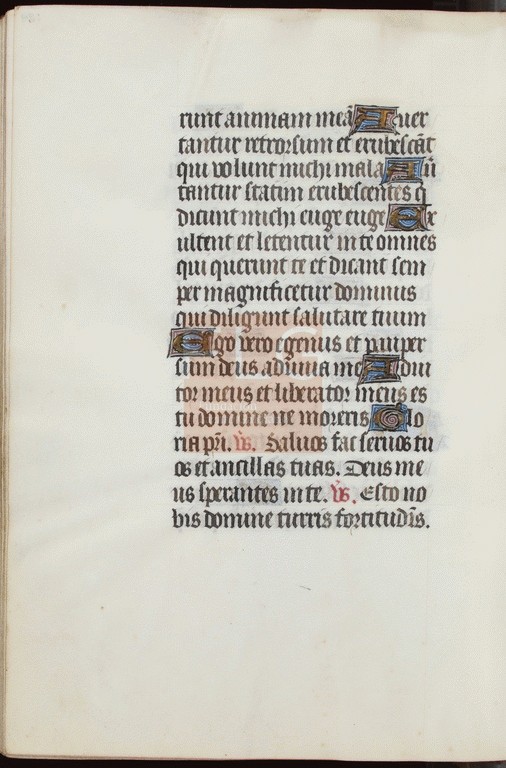 runt animam meā Auer
tantur retrorsum et erubescāt
qui volunt michi mala Auer̄
tantur statim erubescentes q̄
dicunt michi euge euge Ex
ultent et letentur in te omnes
qui querunt te et dicant sem
per magnificetur dominus
qui diligunt salutare tuum
Ego vero egenus et pauper
sum deus adiuua me Adiu
tor meus et liberator meus es
tu domine ne moreris Glo
ria pr̄i. v̄s. Saluos fac seruos tu
os et ancillas tuas. Deus me
us sperantes in te. v̄s. Esto no
bis domine turris fortitudīs.